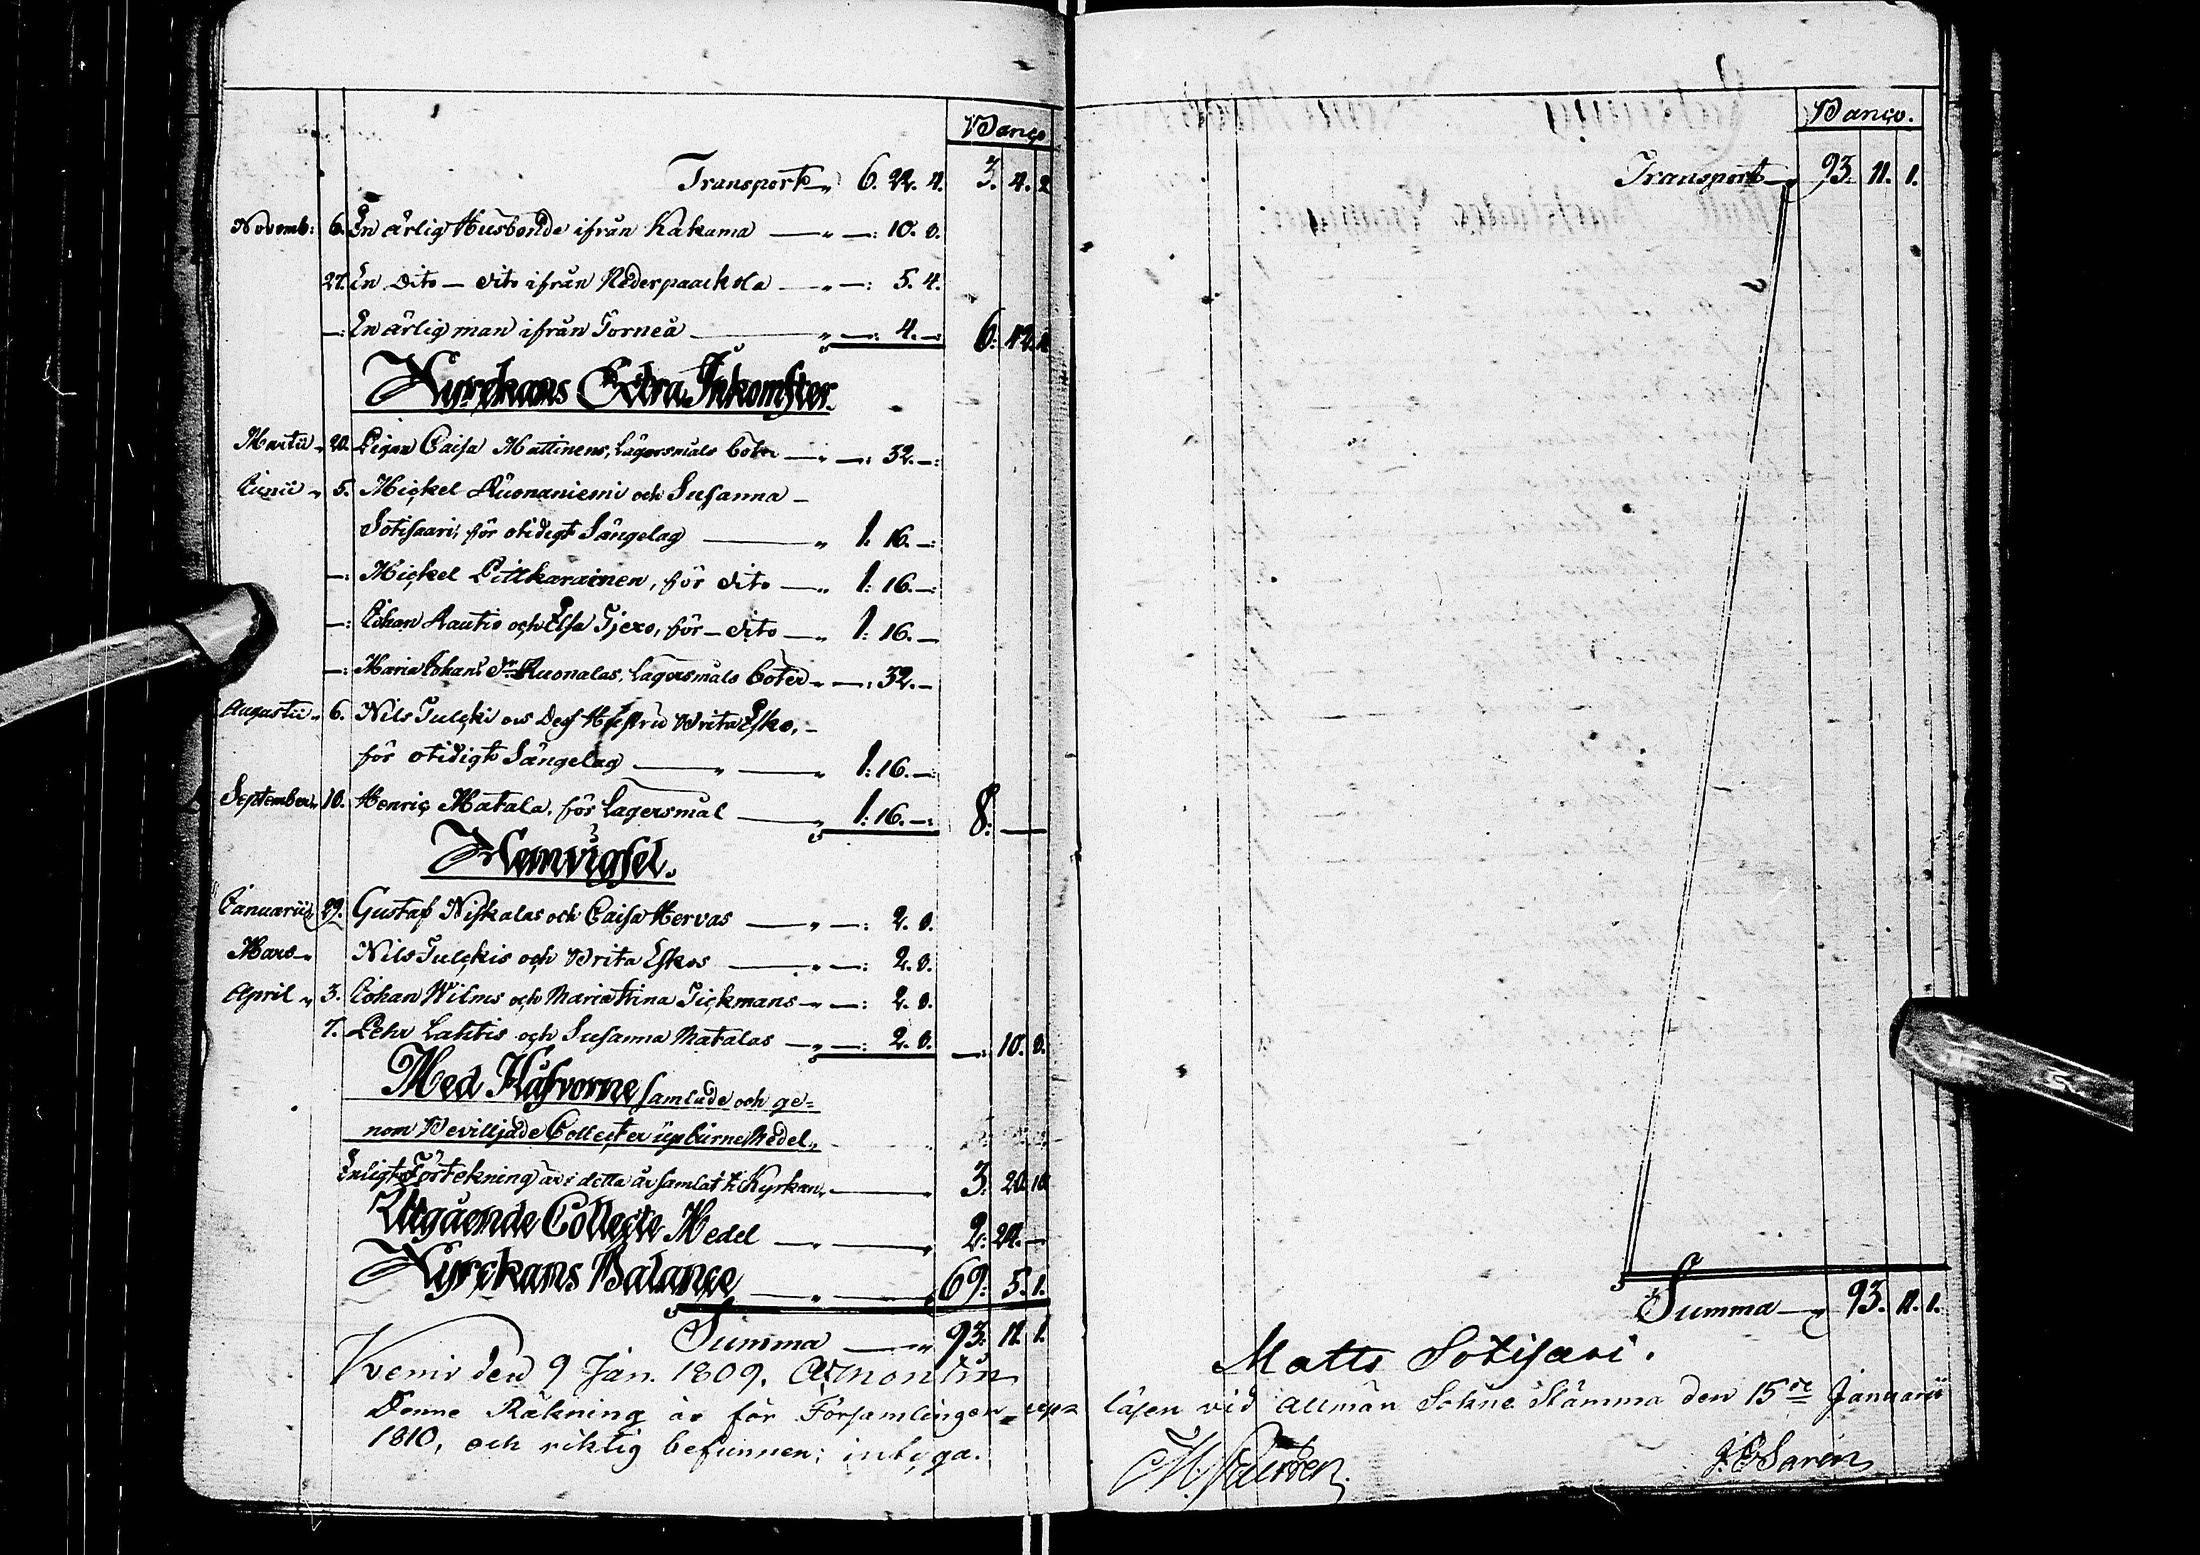 Banco
Transport 6. 22. 4. 3. 4. 2
Novemb: 6. En ärlig Husbonde ifrån Kakama — " —: 10. 8.
27. En dito — dito ifrån Nederpaackola — " —: 5. 4.
—: En ärlig man ifrån Torneå — " —: 4. — 6. 42.
Kyrckans Extra Inkomster.
Martii " 20. Pigan Caisa Mattinens, Lägersmåls böter — " —: 32. —:
Junii " 5. Mickel Ruonaniemi och Susanna —
Sotisaari, för otidigt Sängelag — " 1: 16. —:
—: Mickel Pitkarainen, för dito — " 1: 16. —:
—: Johan Rautio och Elsa Tjero, för — dito — " 1: 16. —
—: Maria Johans dr Ruonalas, Lägersmåls böter " —: 32. —
Augustii " 6. Nils Julcki och dess Hustru Brita Esko, —
för otidigt Sängelag — " — " 1: 16. —:
September " 10. Henric Matala, för Lägersmål — " 1: 16. —: 8: —
Hemvigsel.
Januarii 29. Gustaf Niskalas och Caisa Hervas — " —: 2. 8.
Mars " Nils Julckis och Brita Eskos — " —: 2. 8.
April " 3. Johan Wilms och Maria Stina Tickmans — " —: 2. 8.
7. Pehr Lahtis och Susanna Matalas — " —: 2. 8. —: 10. 8.
Med Håfvorne samlade och ge=
nom Bevilljade Collecter upburne Medel "
Enligt Förtekning är i detta år samlat t. Kyrkan " — " 3. 20. 10
Utgående Collecte Medel — " — " 2: 24. —
Kyrckans Balance — " — " 69: 5. 1.
Summa — " 93. 11. 1.
den 9 Jan. 1809. A Montin
Denne Räkning är för Församlingen up=
1810, och riktig befunnen; intyga.
Banco.
Transport — " 93. 11. 1.
Summa — " 93. 11. 1.
Matts Sotisari.
läsen vid allmän Sokne Stämma den 15de Januarii